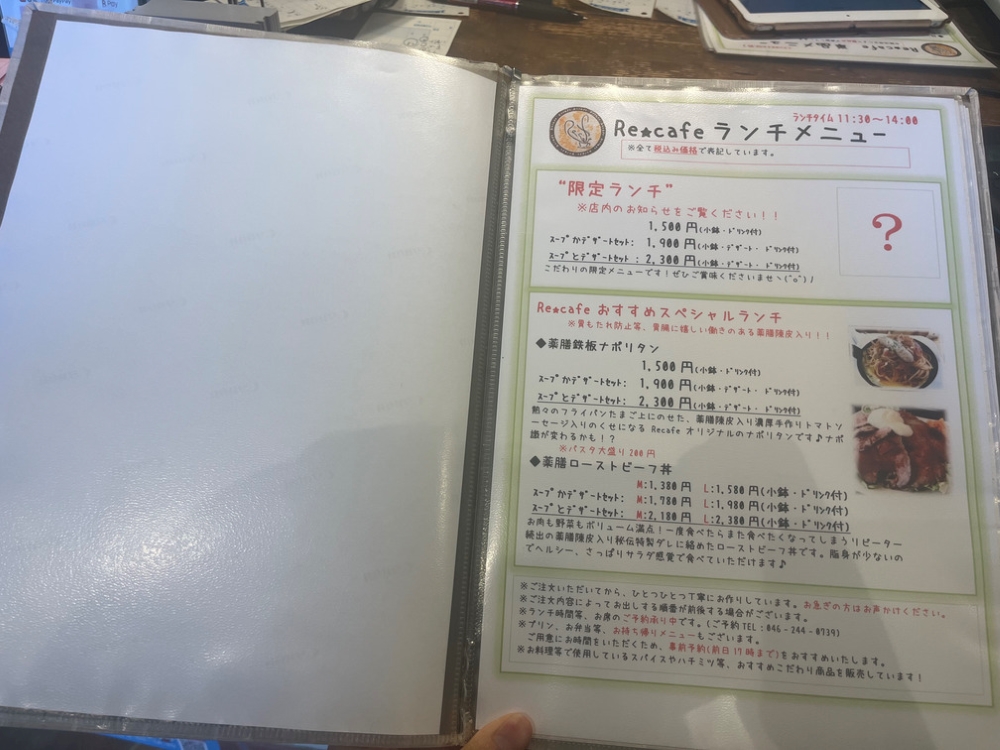 Re★cafe 薬膳メニュー
ランチタイム 11:30～14:00
Re★cafe ランチメニュー
※全て税込み価格で表記しています。
“限定ランチ”
※店内のお知らせをご覧ください！！
1,500 円(小鉢・ドリンク付)
スープかデザートセット: 1,900 円(小鉢・デザート・ドリンク付)
スープとデザートセット: 2,300 円(小鉢・デザート・ドリンク付)
こだわりの限定メニューです！ぜひご賞味くださいませヽ(^o^)丿
?
Re★cafe おすすめスペシャルランチ
※胃もたれ防止等、胃腸に嬉しい働きのある薬膳陳皮入り！！
◆薬膳鉄板ナポリタン
1,500 円(小鉢・ドリンク付)
スープかデザートセット: 1,900 円(小鉢・デザート・ドリンク付)
スープとデザートセット: 2,300 円(小鉢・デザート・ドリンク付)
熱々のフライパンたまご上にのせた、薬膳陳皮入り濃厚手作りトマトソ
ーセージ入りのくせになる Recafe オリジナルのナポリタンです♪ナポ
識が変わるかも！？
※パスタ大盛り 200 円
◆薬膳ローストビーフ丼
M:1,380 円 L:1,580 円(小鉢・ドリンク付)
スープかデザートセット: M:1,780 円 L:1,980 円(小鉢・ドリンク付)
スープとデザートセット: M:2,180 円 L:2,380 円(小鉢・ドリンク付)
お肉も野菜もボリューム満点！一度食べたらまた食べたくなってしまうリピーター
続出の薬膳陳皮入り秘伝特製ダレに絡めたローストビーフ丼です。脂身が少ないの
でヘルシー、さっぱりサラダ感覚で食べていただけます♪
※ご注文いただいてから、ひとつひとつ丁寧にお作りしています。お急ぎの方はお声かけください。
※ご注文内容によってお出しする順番が前後する場合がございます。
※ランチ時間等、お席のご予約承り中です。(ご予約 TEL：046-244-0739)
※プリン、お弁当等、お持ち帰りメニューもございます。
ご用意にお時間をいただくため、事前予約(前日17時まで)をおすすめいたします。
※お料理等で使用しているスパイスやハチミツ等、おすすめこだわり商品を販売しています！